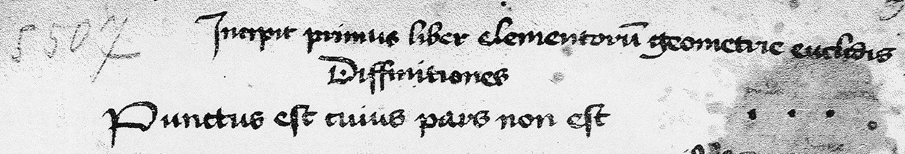 5507
Incipit primus liber elementorū geometrie euclidis
Diffinitiones
Punctus est cuius pars non est